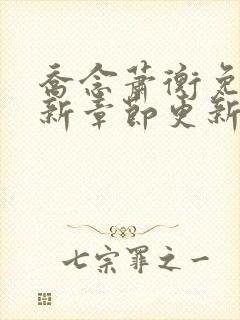 乔念萧衡免
新章节更新
七宗罪之一